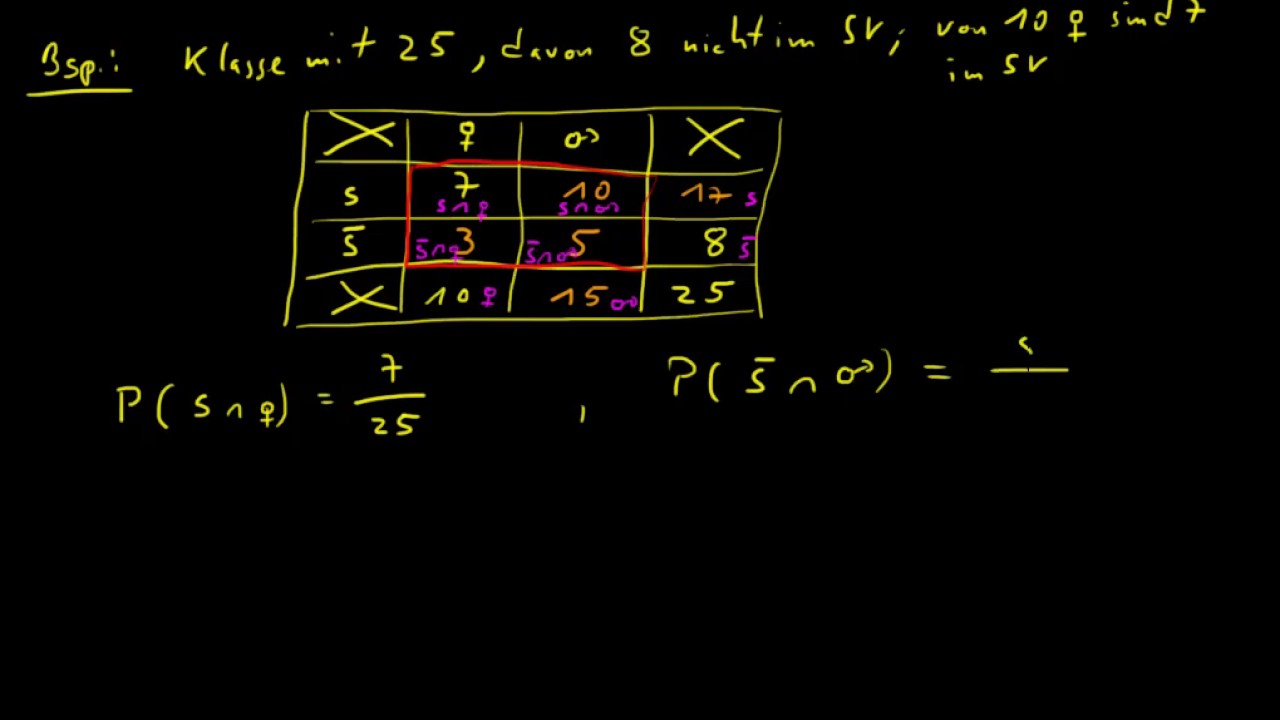 Bsp.: Klasse mit 25, davon 8 nicht im SV; von 10 ♀ sind 7
im SV
X ♀ ♂ X
s 7 10 17 s
s∩♀ s∩♂
s̄ 3 5 8 s̄
s̄∩♀ s̄∩♂
X 10 ♀ 15 ♂ 25
P(s∩♀) = 7/25 , P(s̄∩♂) =